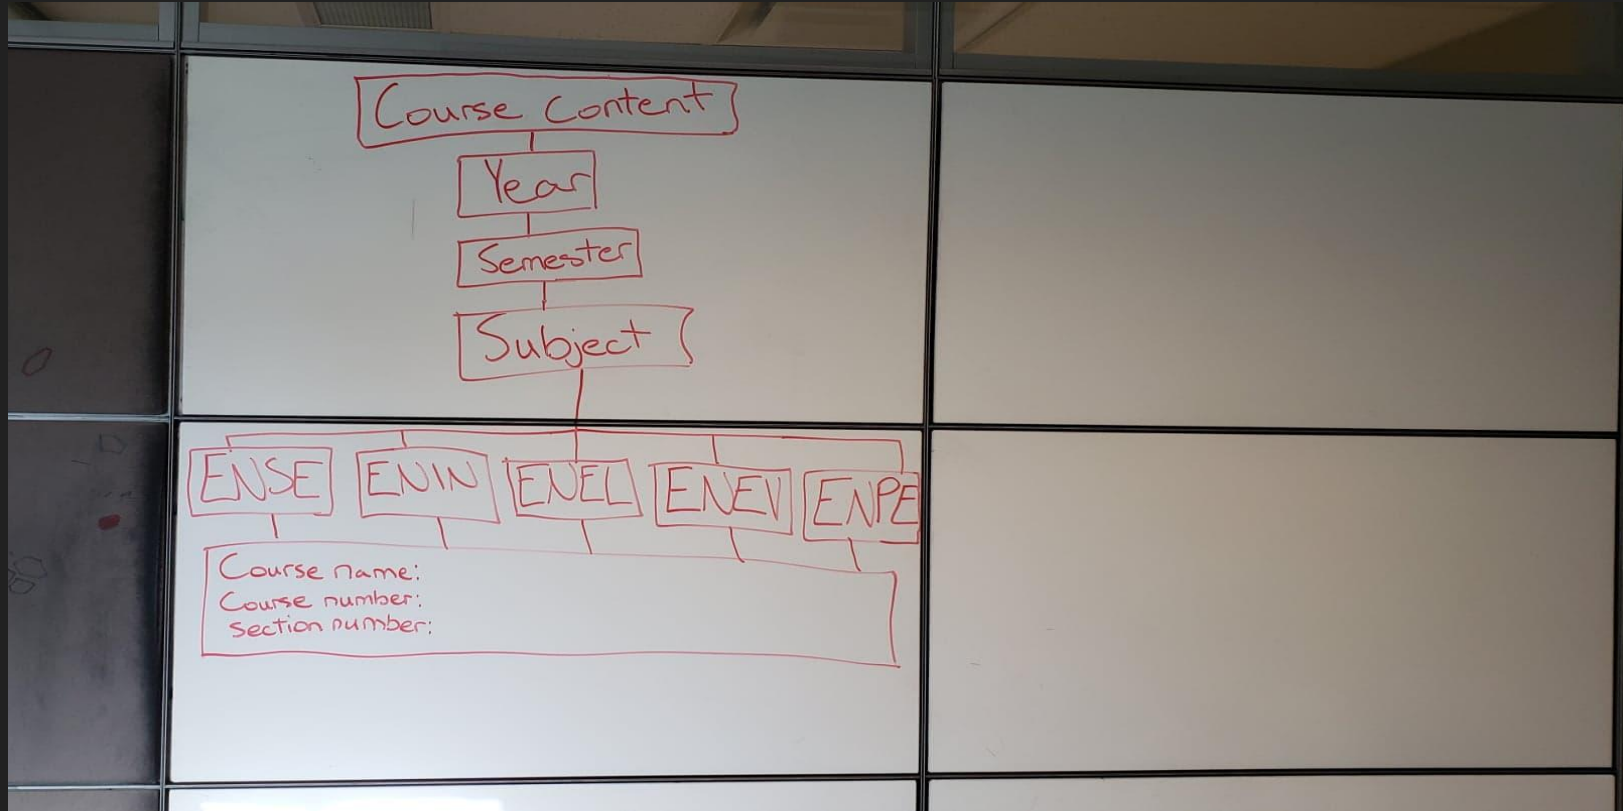 Course Content
Year
Semester
Subject
ENSE ENIN ENEL ENEV ENPE
Course name:
Course number:
Section number: